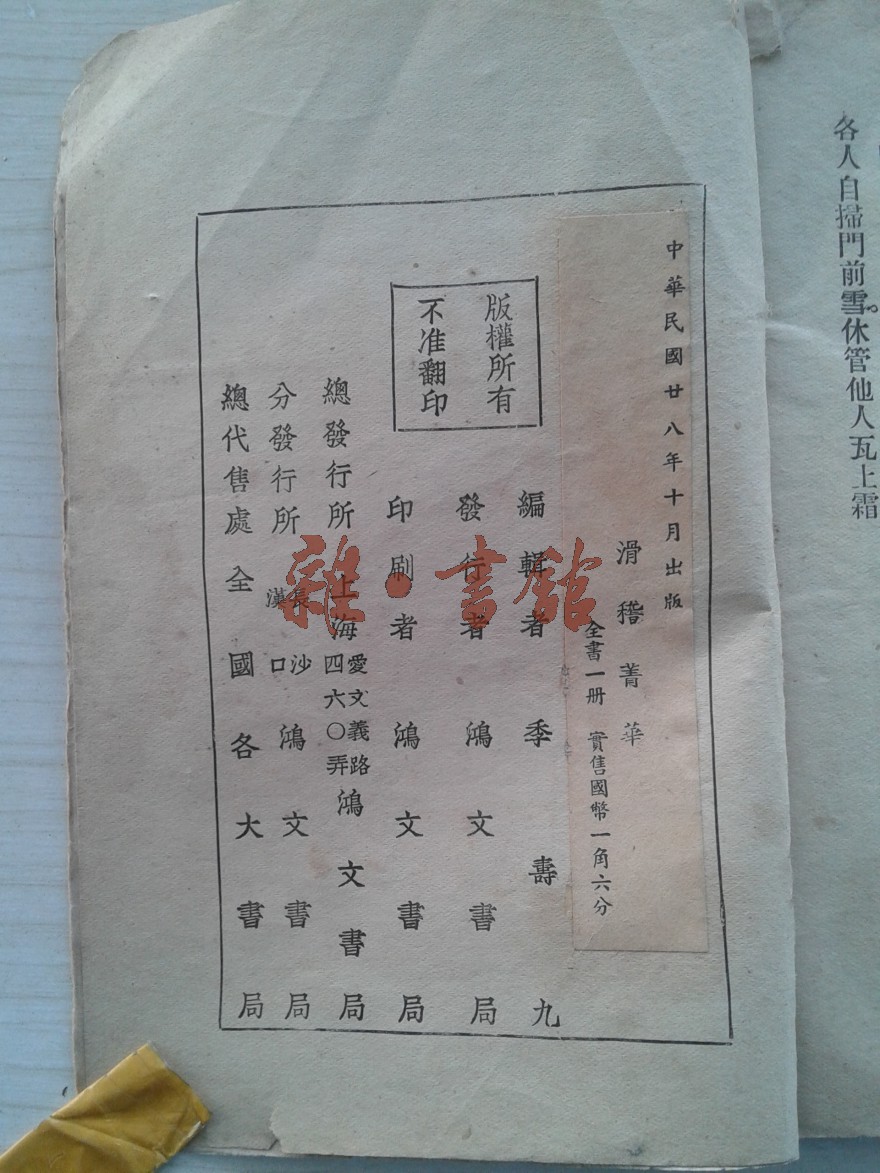 各人自掃門前雪。休管他人瓦上霜
中華民國廿八年十月出版
滑稽菁華
全書一册 實售國幣一角六分
版權所有
不准翻印
編輯者 季壽九
發行者 鴻文書局
印刷者 鴻文書局
總發行所 上海愛文義路四六〇弄鴻文書局
分發行所 長沙漢口鴻文書局
總代售處 全國各大書局
雜·書館